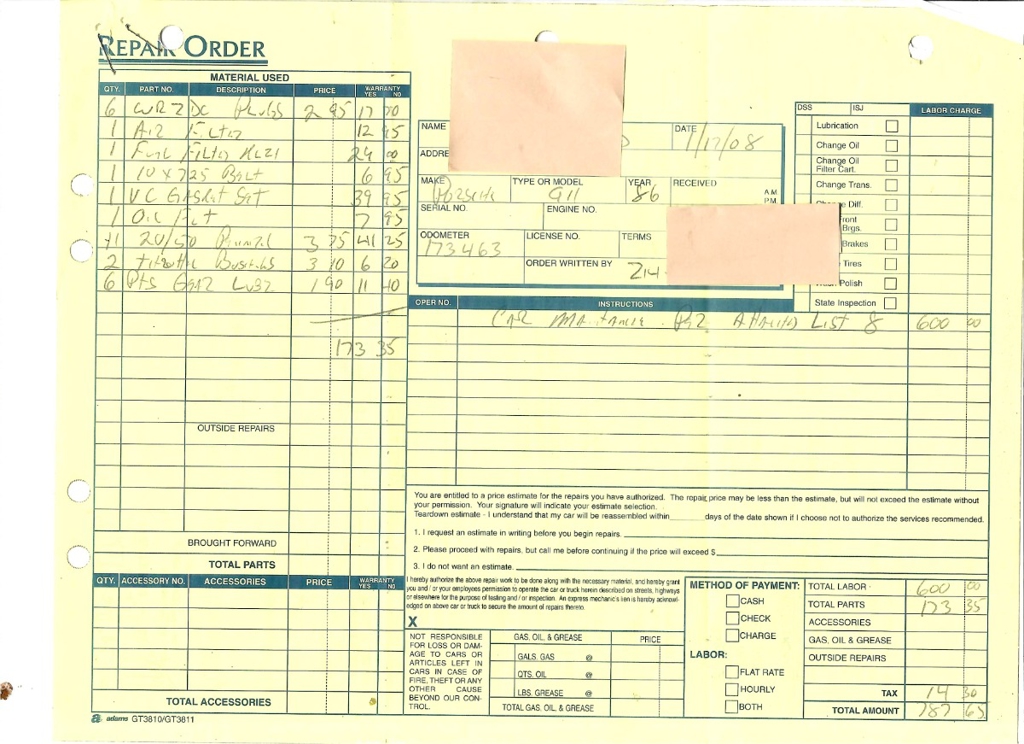 REPAIR ORDER
MATERIAL USED
QTY. PART NO. DESCRIPTION PRICE WARRANTY YES NO
6 WR7DC Plugs 2 95 17 70
1 Air Filter 12 95
1 Fuel Filter 24 00
1 10 x 725 Belt 6 95
1 VC Gasket Set 39 95
1 Oil Filt 7 95
11 20/50 3 75 41 25
2 3 10 6 20
6 Pts Gear Lube 1 90 11 40
173 35
OUTSIDE REPAIRS
BROUGHT FORWARD
TOTAL PARTS
QTY. ACCESSORY NO. ACCESSORIES PRICE WARRANTY YES NO
TOTAL ACCESSORIES
adams GT3810/GT3811
NAME
DATE 1/17/08
ADDRE
MAKE Porsche
TYPE OR MODEL 911
YEAR 86
RECEIVED
A.M.
P.M.
SERIAL NO.
ENGINE NO.
ODOMETER 173463
LICENSE NO.
TERMS
ORDER WRITTEN BY
DSS ISJ LABOR CHARGE
Lubrication
Change Oil
Change Oil Filter Cart.
Change Trans.
Diff.
Front Brgs.
Brakes
Tires
Polish
State Inspection
OPER NO. INSTRUCTIONS
Car Per List 600 00
You are entitled to a price estimate for the repairs you have authorized. The repair price may be less than the estimate, but will not exceed the estimate without
your permission. Your signature will indicate your estimate selection.
Teardown estimate - I understand that my car will be reassembled within days of the date shown if I choose not to authorize the services recommended.
1. I request an estimate in writing before you begin repairs.
2. Please proceed with repairs, but call me before continuing if the price will exceed $
3. I do not want an estimate.
I hereby authorize the above repair work to be done along with the necessary material, and hereby grant
you and / or your employees permission to operate the car or truck herein described on streets, highways
or elsewhere for the purpose of testing and / or inspection. An express mechanic's lien is hereby acknowl-
edged on above car or truck to secure the amount of repairs thereto.
X
NOT RESPONSIBLE
FOR LOSS OR DAM-
AGE TO CARS OR
ARTICLES LEFT IN
CARS IN CASE OF
FIRE, THEFT OR ANY
OTHER CAUSE
BEYOND OUR CON-
TROL.
GAS, OIL & GREASE PRICE
GALS. GAS @
QTS. OIL @
LBS. GREASE @
TOTAL GAS, OIL & GREASE
METHOD OF PAYMENT:
CASH
CHECK
CHARGE
LABOR:
FLAT RATE
HOURLY
BOTH
TOTAL LABOR 600 00
TOTAL PARTS 173 35
ACCESSORIES
GAS, OIL & GREASE
OUTSIDE REPAIRS
TAX 14 30
TOTAL AMOUNT 787 65